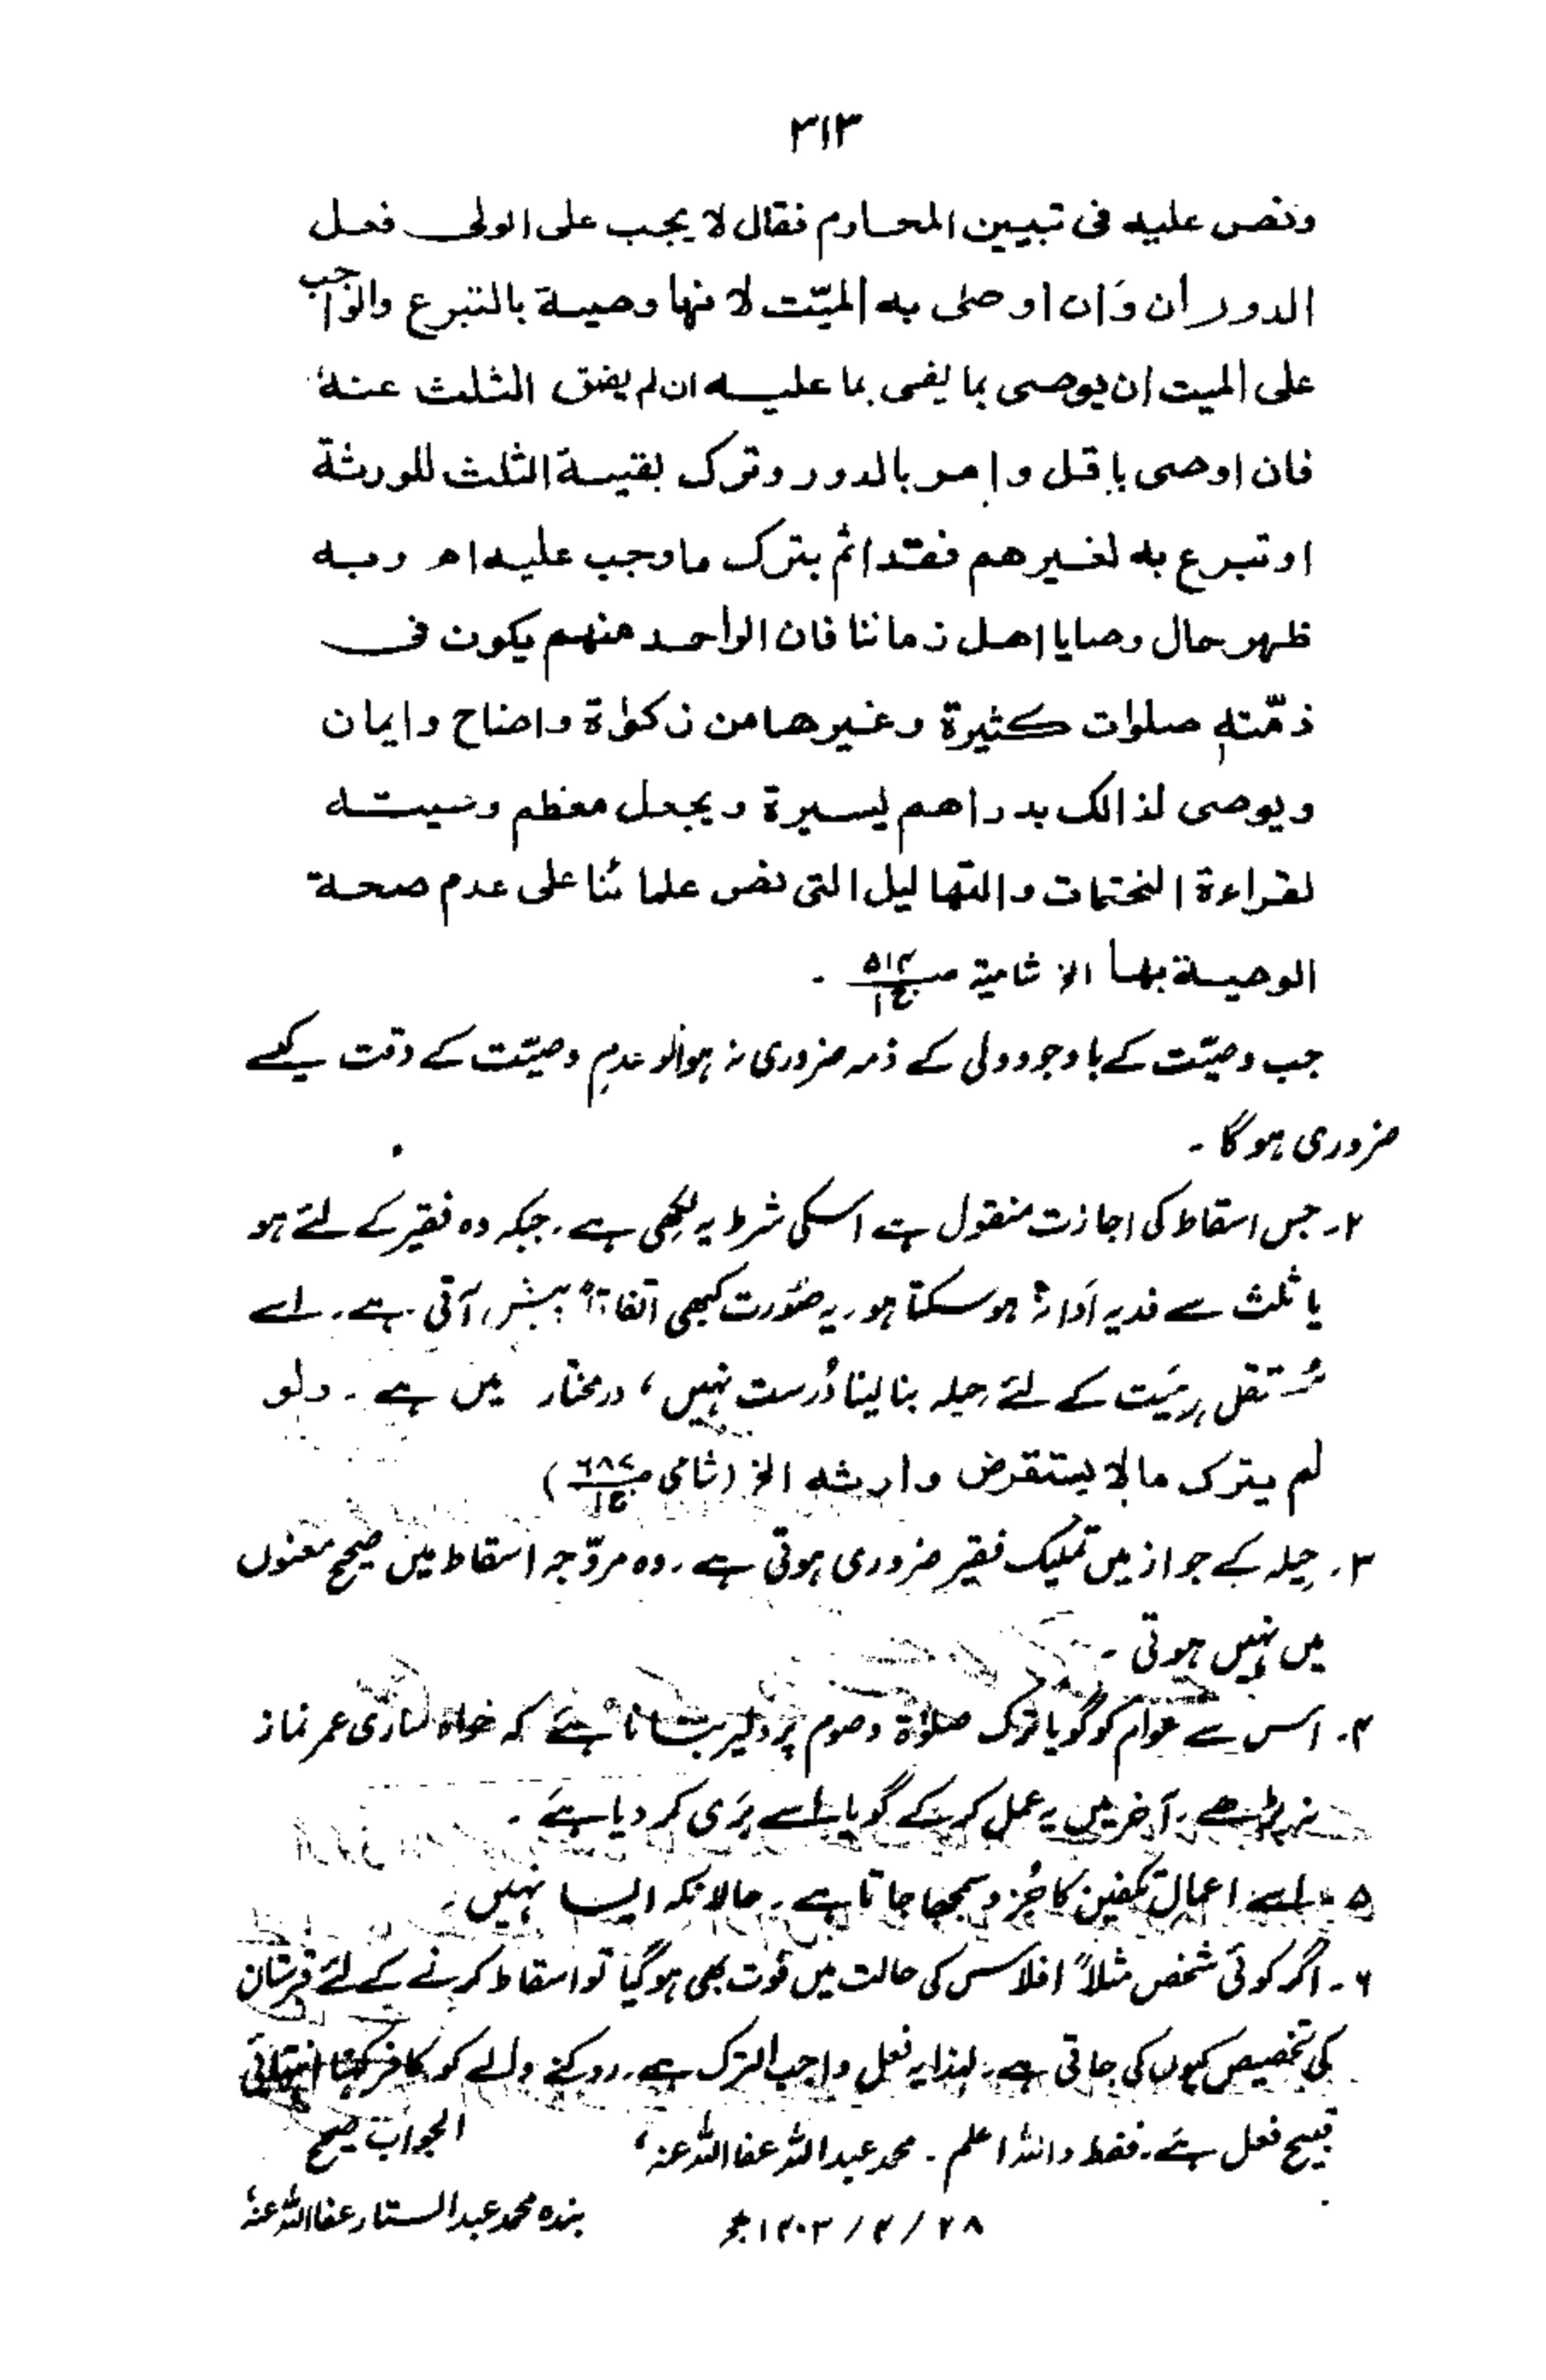 ۳۱۳
ونص علیه فی تبیین المحارم فقال لا یجب علی الولی فعل
الدوران وَان اوصٰی به المیّت لانها وصیة بالتبرع والواجب
علی المیت ان یوصی بما یفی بما علیه ان لم یضق الثلث عنهٗ
فان اوصی باقل وامر بالدور وترک بقیة الثلث للورثة
اوتبرع به لغیرهم فقد اثم بترک ما وجب علیه اھ وبه
ظهر حال وصایا اهل زماننا فان الواحد منهم یکون فی
ذمّته صلوات کثیرة وغیرها من زکوٰة واضاح وایمان
ویوصی لذالک بدراهم یسیرة ویجعل معظم وصیته
لقراءة الختمات والتهالیل التی نص علمائنا علی عدم صحة
الوصیة بها الخ شامیة صـ ۵۱۴ ج۱ ۔
جب وصیّت کے باوجود ولی کے ذمہ ضروری نہ ہوا تو عدمِ وصیّت کے وقت کیسے
ضروری ہوگا ۔
۲۔ جس اسقاط کی اجازت منقول ہے اسکی شرط یہ لکھی ہے ۔ جبکہ وہ فقیر کے لئے ہو
یا ثلث سے فدیہ اَدا نہ ہوسکتا ہو ۔ یہ صُورت کبھی اتفاقاً پیش آتی ہے ۔ اسے
مُستقل ہر میّت کے لئے حیلہ بنالینا دُرست نہیں ، درمختار میں ہے ۔ ولو
لم یترک مالا یستقرض وارثه الخ (شامی صـ ۶۸۷ ج۱)
۳۔ حیلہ کے جواز میں تملیک فقیر ضروری ہوتی ہے ۔ وہ مروّجہ اسقاط میں صحیح معنوں
میں نہیں ہوتی ۔
۴۔ اس سے عوام کو گویا ترک صلاۃ وصوم پر دلیر بنانا ہے کہ خواہ ساری عمر نماز
نہ پڑھے ۔ آخر میں یہ عمل کرکے گویا اسے بَری کر دیا ہے ۔
۵۔ اسے اعمالِ تکفین کا جُزو سمجھا جاتا ہے ۔ حالانکہ ایسا نہیں ۔
۶۔ اگر کوئی شخص مثلاً افلاس کی حالت میں فوت بھی ہوگیا تو اسقاط کرنے کے لئے قبرستان
کی تخصیص کیوں کی جاتی ہے ۔ لہٰذا یہ فعل واجب الترک ہے ۔ روکنے والے کو کافر کہنا انتہائی
قبیح فعل ہے ۔ فقط واللہ اعلم ۔ محمد عبداللہ عفا اللہ عنہ ، الجواب صحیح
۲۸ / ۴ / ۱۴۰۳ھ بندہ محمد عبدالستار عفا اللہ عنہٗ